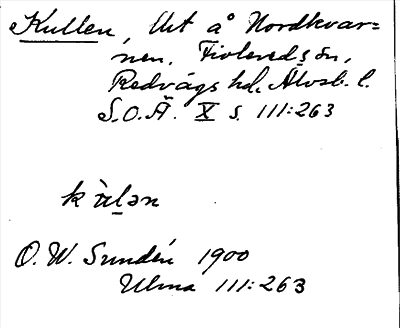 Kullen, Urt å Nordkvar=
nen, Fivlereds sn,
Redvägs hd. Älvsb. l.
S.O.Ä. X s. 111:263
k ùlən
O. W. Sundén 1900
Ulma 111:263